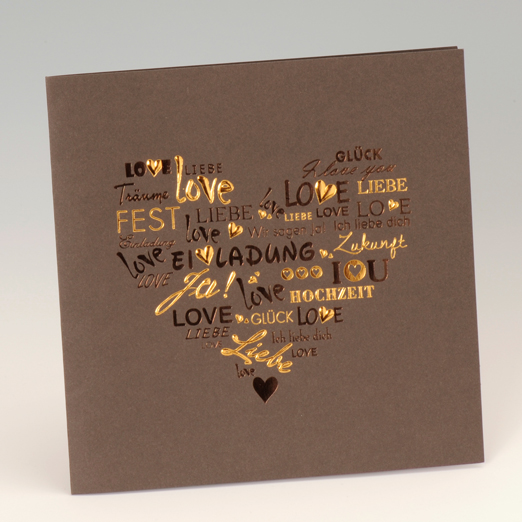 GLÜCK
LOVE LIEBE I love you
Träume love LOVE LIEBE
FEST LIEBE love LIEBE LOVE LOVE
love Wir sagen ja! Ich liebe dich
Einladung Zukunft
love EINLADUNG
LOVE I O U
Ja! love HOCHZEIT
LOVE GLÜCK LOVE
LIEBE Ich liebe dich
Liebe LOVE
love